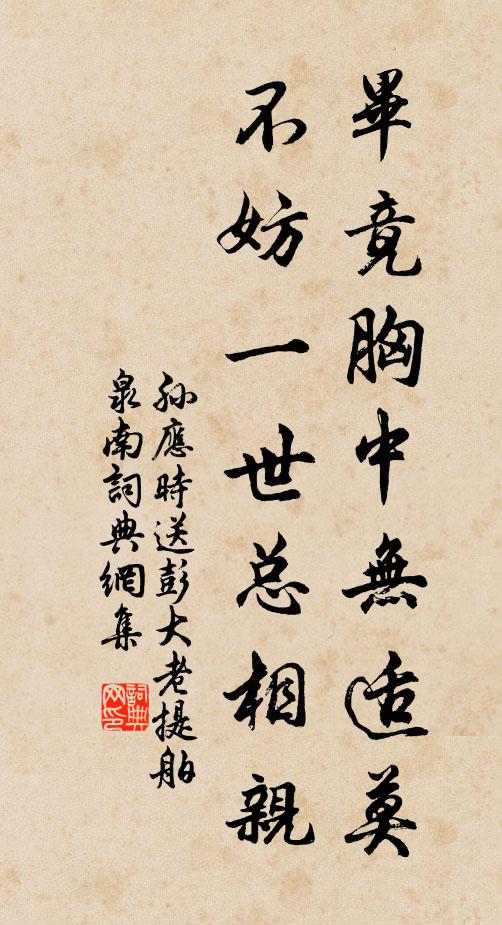 畢竟胸中無适莫
不妨一世总相親
孙應時送彭大老提舶
泉南詞典網集
詞典网印